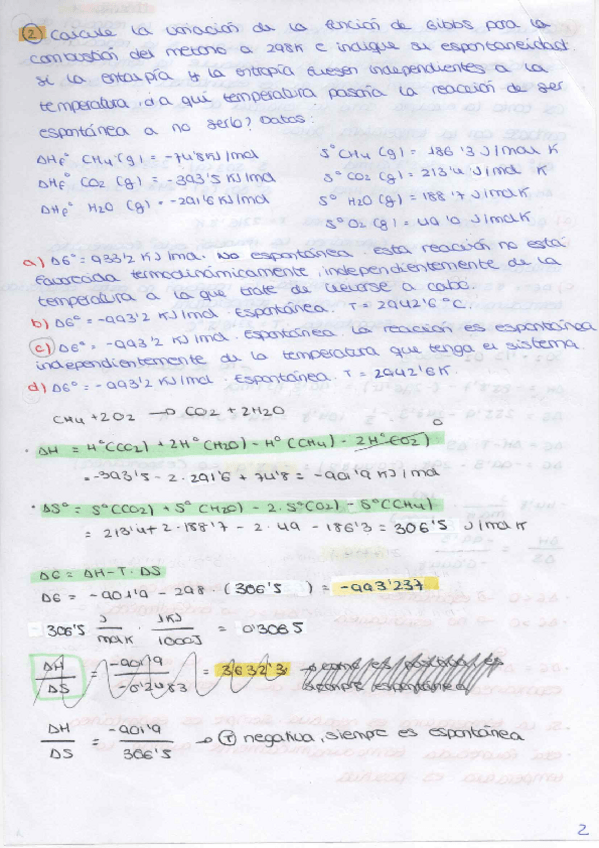 ② Calcule la variación de la función de Gibbs para la
combustión del metano a 298K e indique su espontaneidad.
Si la entalpía y la entropía fuesen independientes a la
temperatura, ¿a qué temperatura pasaría la reacción de ser
espontánea a no serlo? Datos:
ΔHf° CH4 (g) = -74'8 KJ/mol S° CH4 (g) = 186'3 J/mol K
ΔHf° CO2 (g) = -393'5 KJ/mol S° CO2 (g) = 213'4 J/mol K
ΔHf° H2O (g) = -291'6 KJ/mol S° H2O (g) = 188'7 J/mol K
S° O2 (g) = 49'0 J/mol K
a) ΔG° = 933'2 KJ/mol. No espontánea. esta reacción no está
favorecida termodinámicamente, independientemente de la
temperatura a la que trate de llevarse a cabo.
b) ΔG° = -993'2 KJ/mol. Espontánea. T = 2942'6 °C.
c) ΔG° = -993'2 KJ/mol. Espontánea. La reacción es espontánea
independientemente de la temperatura que tenga el sistema.
d) ΔG° = -993'2 KJ/mol. Espontánea. T = 2942'6 K.
CH4 + 2O2 → CO2 + 2H2O
0
· ΔH = H°(CO2) + 2H°(H2O) - H°(CH4) - 2H°(O2)
= -393'5 - 2·291'6 + 74'8 = -901'9 KJ/mol
· ΔS° = S°(CO2) + S°(H2O) - 2·S°(O2) - S°(CH4)
= 213'4 + 2·188'7 - 2·49 - 186'3 = 306'5 J/mol K
ΔG = ΔH - T·ΔS
ΔG = -901'9 - 298·(306'5) = -993'237
-306'5 J/molK · 1KJ/1000J = 0'3065
ΔH/ΔS = -901'9/-0'2483 = 3632'3 → como es positiva es
siempre espontánea
ΔH/ΔS = -901'9/306'5 → T negativa, siempre es espontánea
2